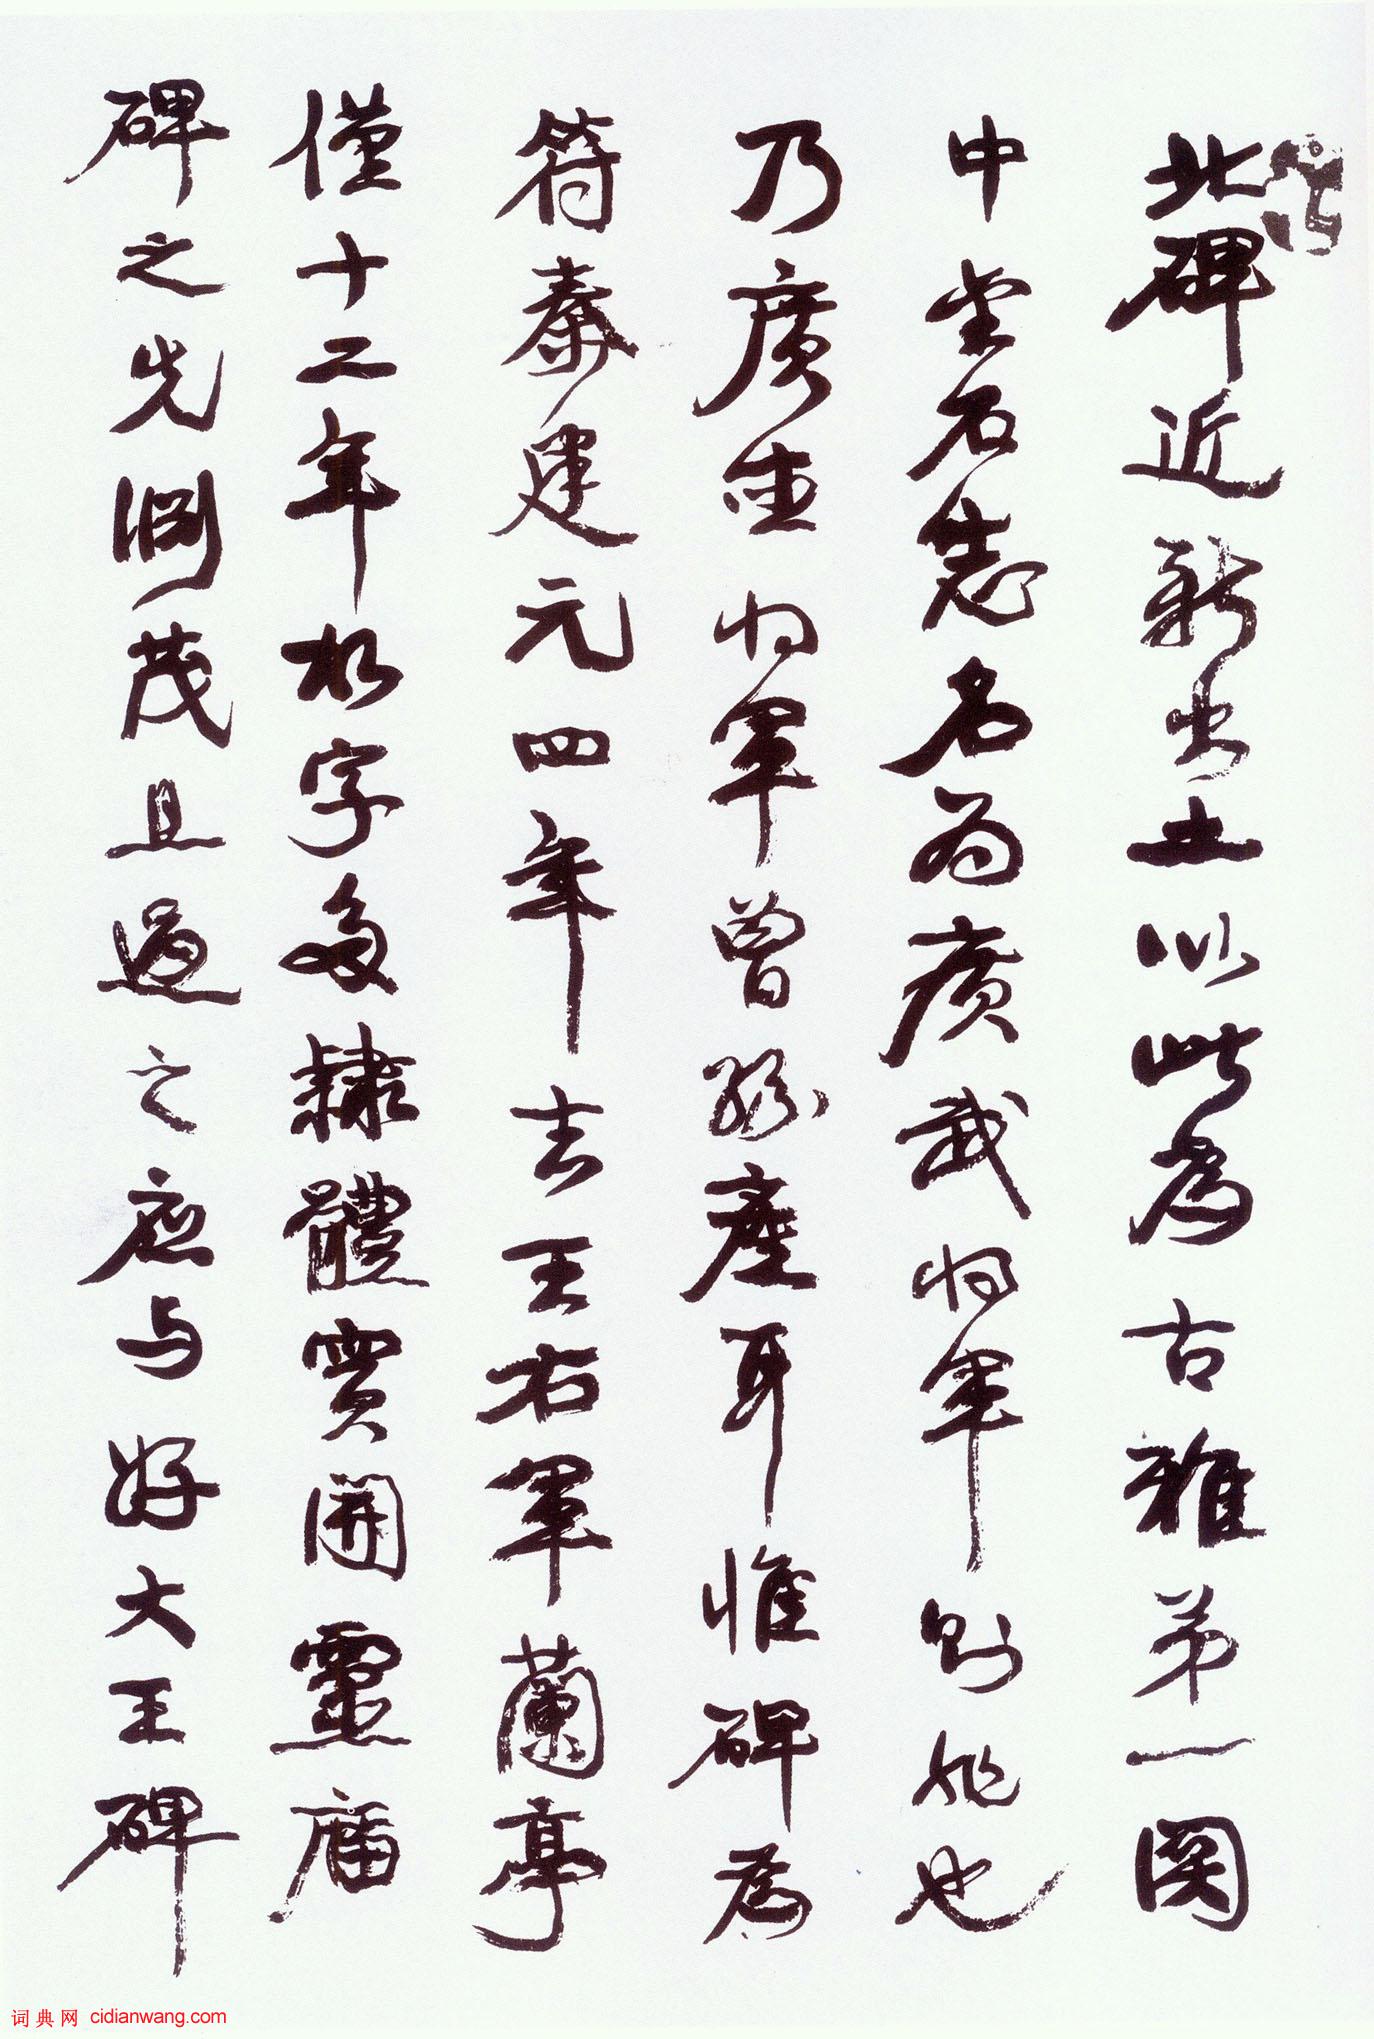 北碑近新出土以此為古雅第一関
中金石志名為廣武将軍則非也
乃廣産将軍曾孫産耳惟碑為
符秦建元四年去王右軍蘭亭
僅十二年於字多隸體實開靈廟
碑之先渊茂且過之应与好大王碑
词典网 cidianwang.com